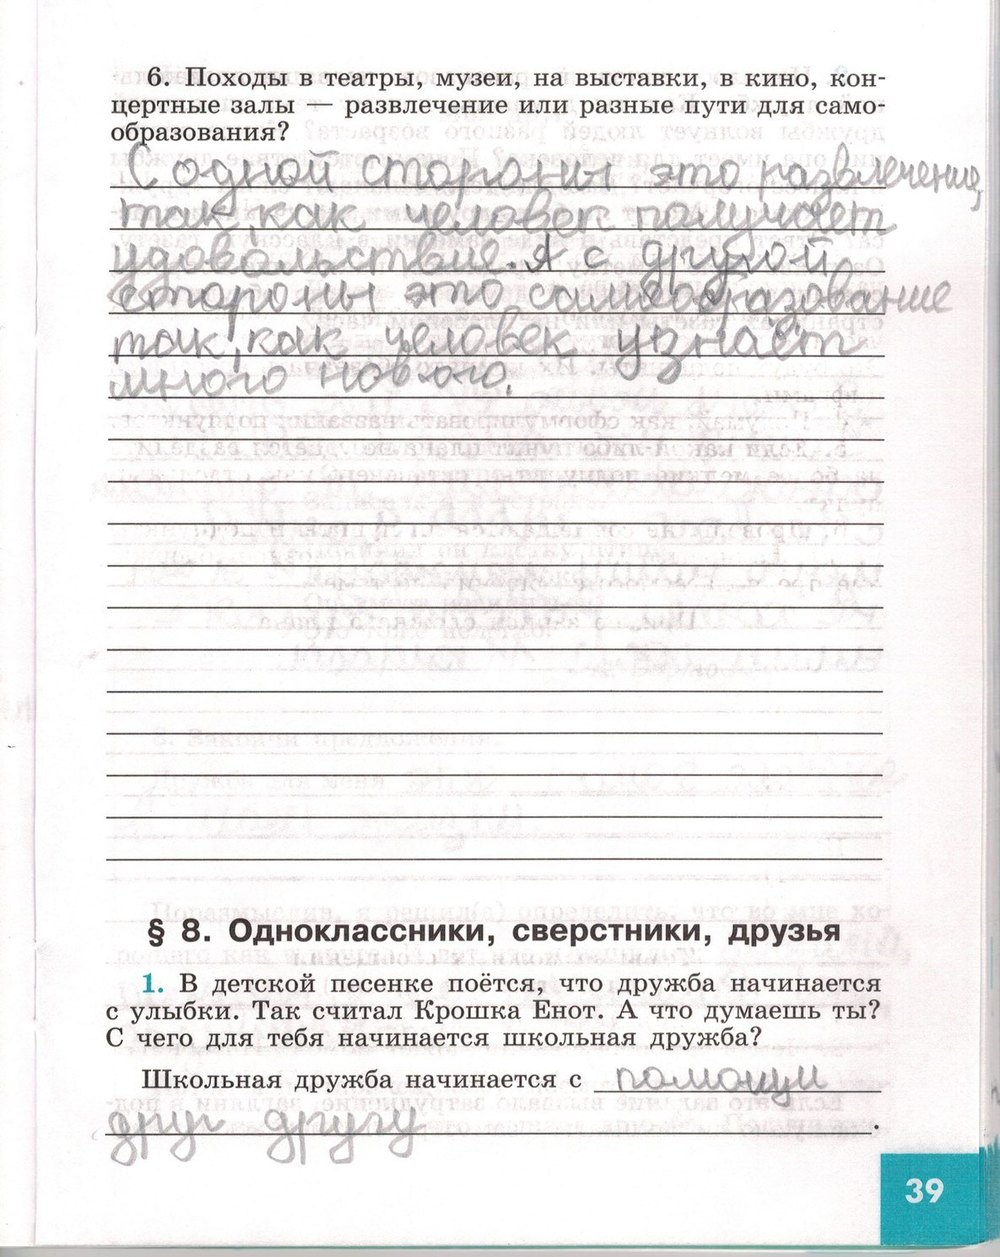 6. Походы в театры, музеи, на выставки, в кино, кон-
цертные залы — развлечение или разные пути для само-
образования?
С одной стороны это развлечение,
так, как человек получает
удовольствие. А с другой
стороны это самообразование
так, как человек узнаёт
много нового.
§ 8. Одноклассники, сверстники, друзья
1. В детской песенке поётся, что дружба начинается
с улыбки. Так считал Крошка Енот. А что думаешь ты?
С чего для тебя начинается школьная дружба?
Школьная дружба начинается с помощи
друг другу.
39